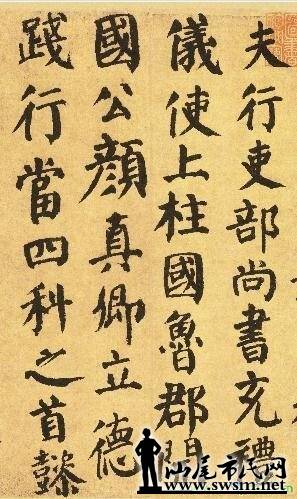 夫行吏部尚書充禮
儀使上柱國魯郡開
國公顏真卿立德
踐行當四科之首懿
汕尾市民网
www.swsm.net